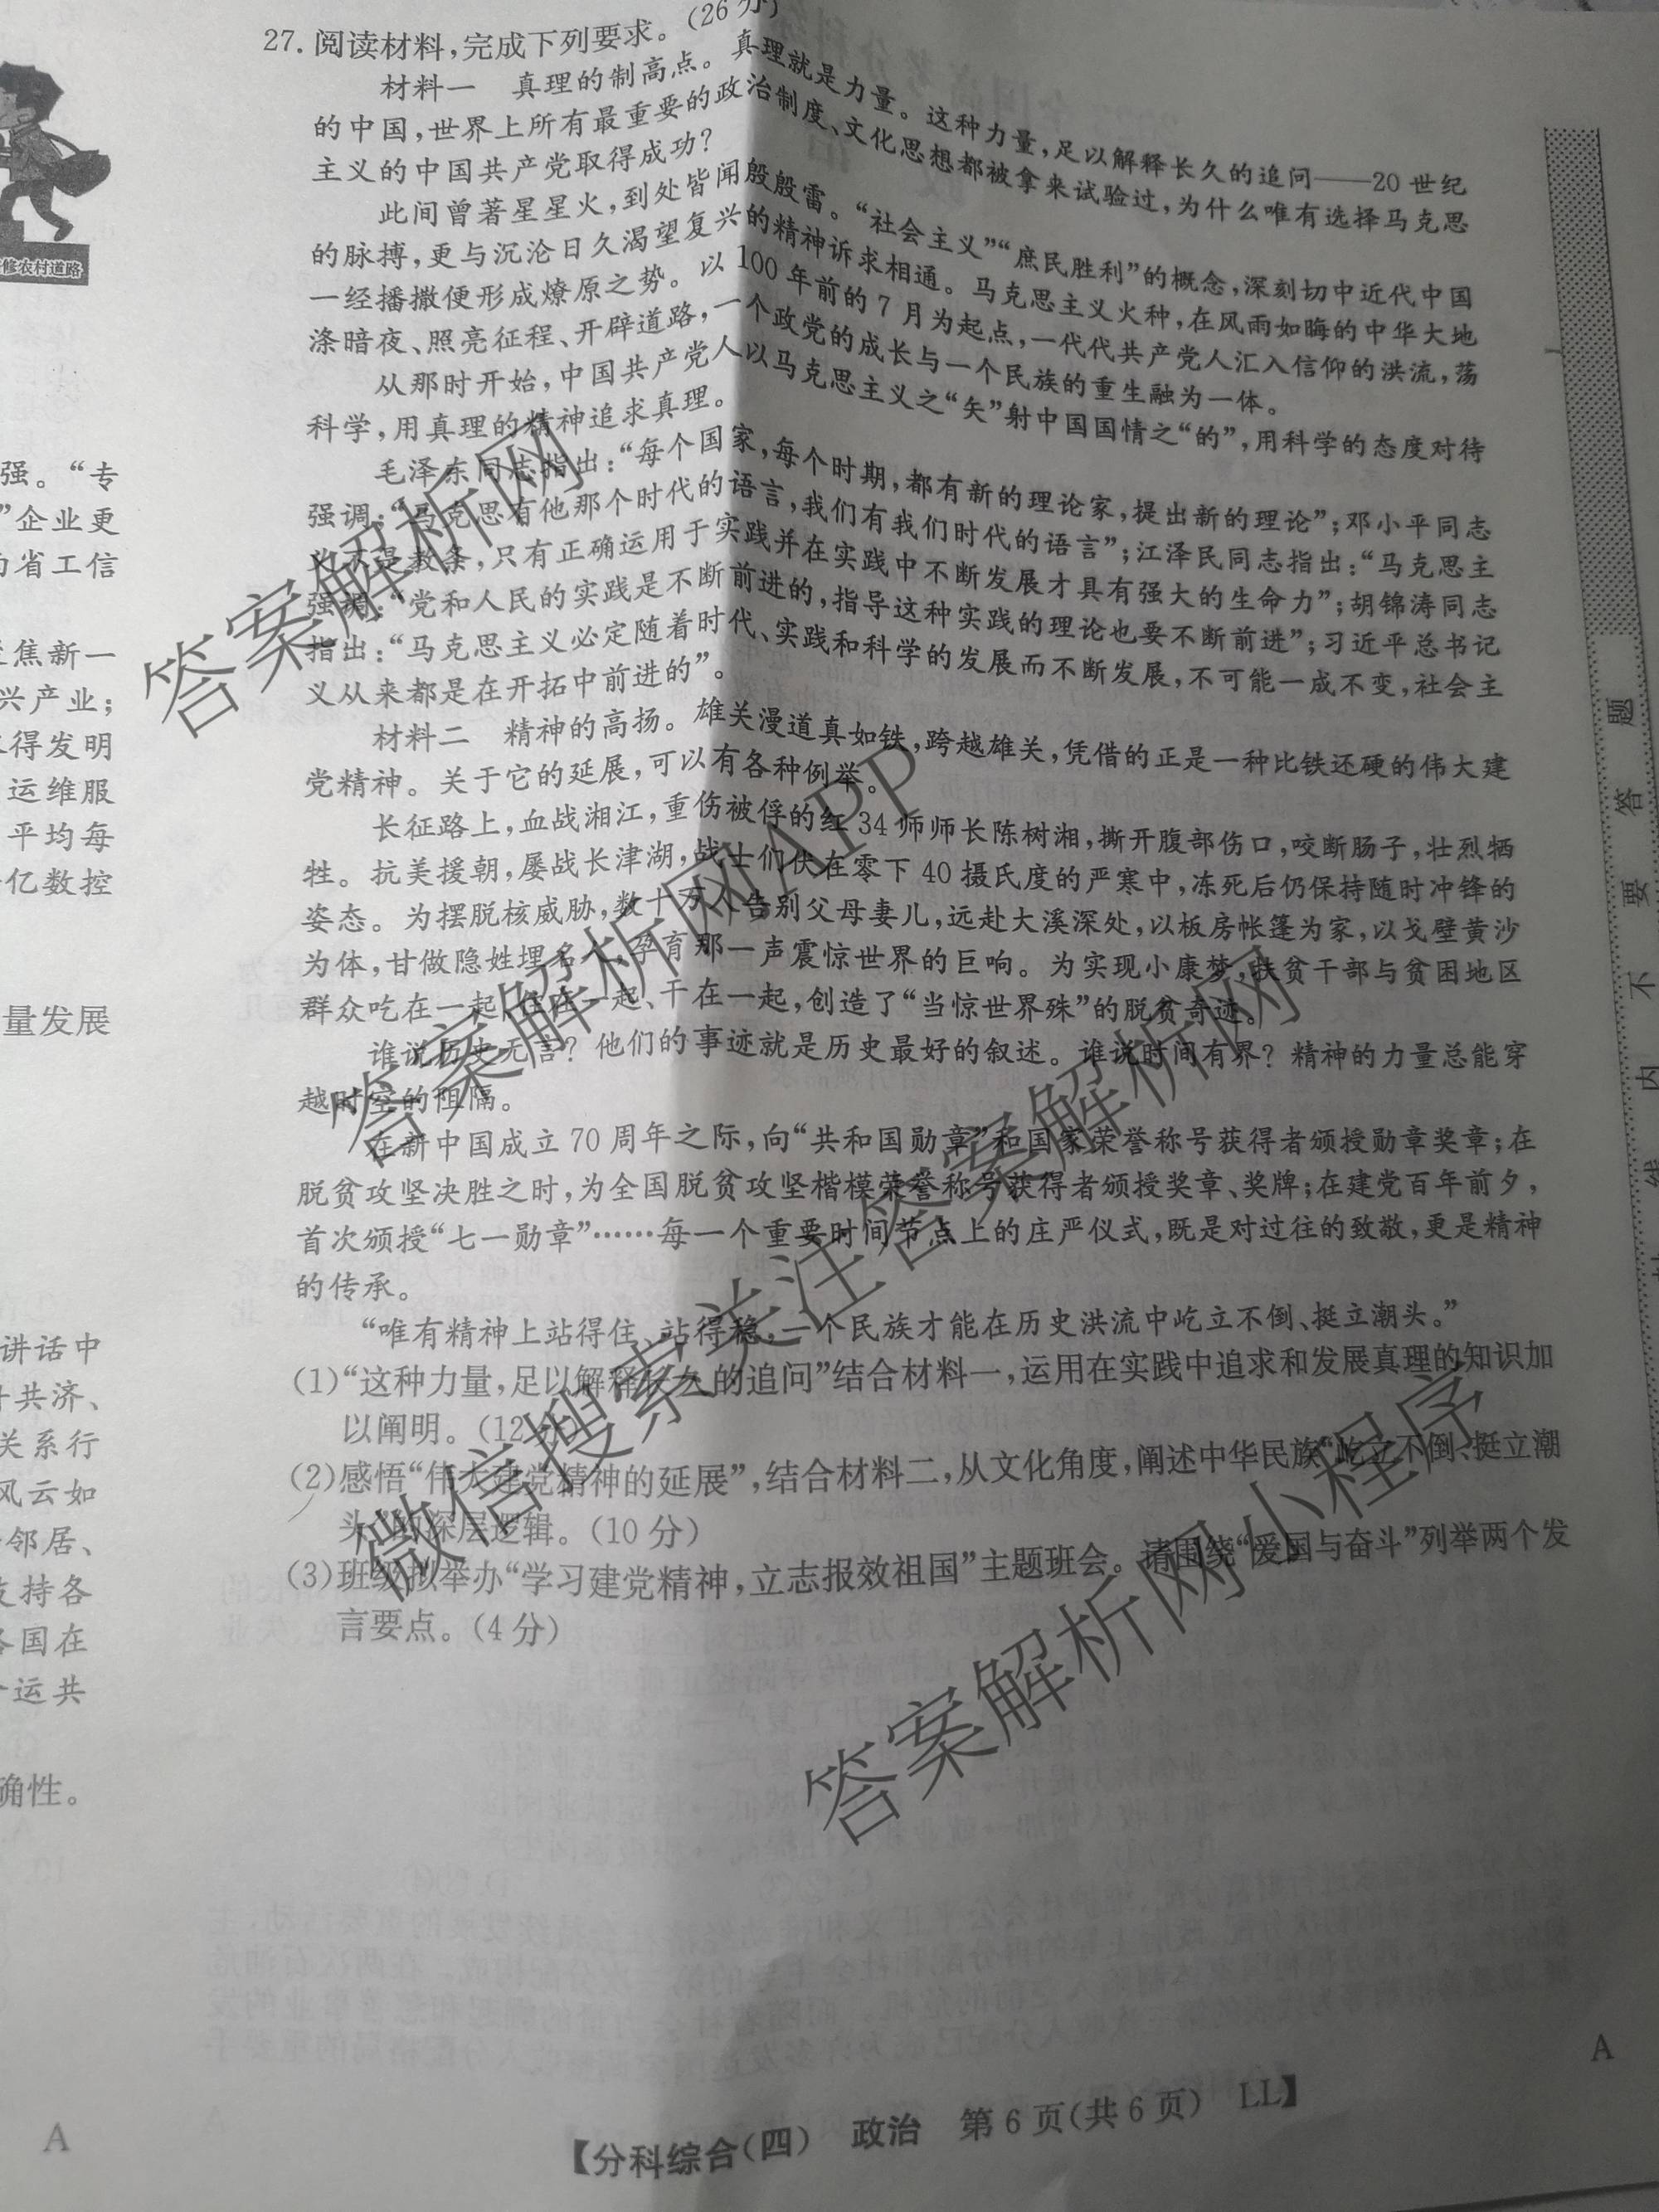 27. 阅读材料,完成下列要求。(26分)
材料一 真理的制高点。真理就是力量。这种力量,足以解释长久的追问——20世纪
的中国,世界上所有最重要的政治制度、文化思想都被拿来试验过,为什么唯有选择马克思
主义的中国共产党取得成功?
此间曾著星星火,到处皆闻殷殷雷。“社会主义”“庶民胜利”的概念,深刻切中近代中国
的脉搏,更与沉沦日久渴望复兴的精神诉求相通。马克思主义火种,在风雨如晦的中华大地
一经播撒便形成燎原之势。以100年前的7月为起点,一代代共产党人汇入信仰的洪流,荡
涤暗夜、照亮征程、开辟道路,一个政党的成长与一个民族的重生融为一体。
从那时开始,中国共产党人以马克思主义之“矢”射中国国情之“的”,用科学的态度对待
科学,用真理的精神追求真理。
毛泽东同志指出:“每个国家,每个时期,都有新的理论家,提出新的理论”;邓小平同志
强调:“马克思有他那个时代的语言,我们有我们时代的语言”;江泽民同志指出:“马克思主
义不是教条,只有正确运用于实践并在实践中不断发展才具有强大的生命力”;胡锦涛同志
强调:“党和人民的实践是不断前进的,指导这种实践的理论也要不断前进”;习近平总书记
指出:“马克思主义必定随着时代、实践和科学的发展而不断发展,不可能一成不变,社会主
义从来都是在开拓中前进的”。
材料二 精神的高扬。雄关漫道真如铁,跨越雄关,凭借的正是一种比铁还硬的伟大建
党精神。关于它的延展,可以有各种例举。
长征路上,血战湘江,重伤被俘的红34师师长陈树湘,撕开腹部伤口,咬断肠子,壮烈牺
牲。抗美援朝,屡战长津湖,战士们伏在零下40摄氏度的严寒中,冻死后仍保持随时冲锋的
姿态。为摆脱核威胁,数十万人告别父母妻儿,远赴大溪深处,以板房帐篷为家,以戈壁黄沙
为体,甘做隐姓埋名人,孕育那一声震惊世界的巨响。为实现小康梦,扶贫干部与贫困地区
群众吃在一起、住在一起、干在一起,创造了“当惊世界殊”的脱贫奇迹。
谁说历史无言?他们的事迹就是历史最好的叙述。谁说时间有界?精神的力量总能穿
越时空的阻隔。
在新中国成立70周年之际,向“共和国勋章”和国家荣誉称号获得者颁授勋章奖章;在
脱贫攻坚决胜之时,为全国脱贫攻坚楷模荣誉称号获得者颁授奖章、奖牌;在建党百年前夕,
首次颁授“七一勋章”……每一个重要时间节点上的庄严仪式,既是对过往的致敬,更是精神
的传承。
“唯有精神上站得住、站得稳,一个民族才能在历史洪流中屹立不倒、挺立潮头。”
(1)“这种力量,足以解释长久的追问”结合材料一,运用在实践中追求和发展真理的知识加
以阐明。(12分)
(2)感悟“伟大建党精神的延展”,结合材料二,从文化角度,阐述中华民族“屹立不倒、挺立潮
头”的深层逻辑。(10分)
(3)班级拟举办“学习建党精神,立志报效祖国”主题班会。请围绕“爱国与奋斗”列举两个发
言要点。(4分)
【分科综合(四) 政治 第6页(共6页) LL】
A
A
修农村道路
强。“专
”企业更
省工信
焦新一
兴产业;
得发明
运维服
平均每
亿数控
量发展
讲话中
共济、
关系行
风云如
邻居、
支持各
各国在
运共
确性。
题
答
要
不
内
线
答案解析网
答案解析网APP
微信搜索关注答案解析网
答案解析网小程序